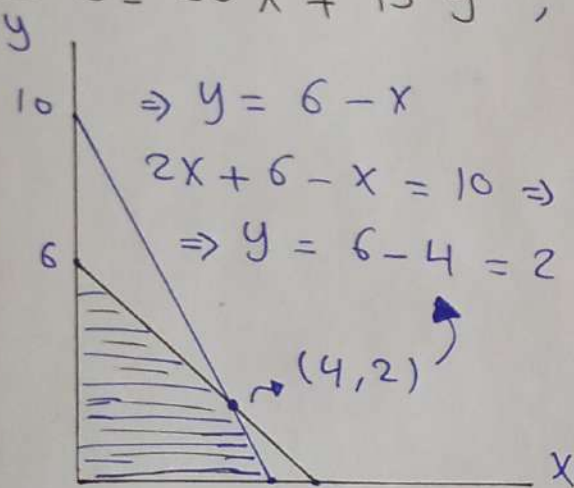 x + 15 y ,
y
10
⇒ y = 6 - x
2x + 6 - x = 10 ⇒
⇒ y = 6 - 4 = 2
6
(4,2)
x